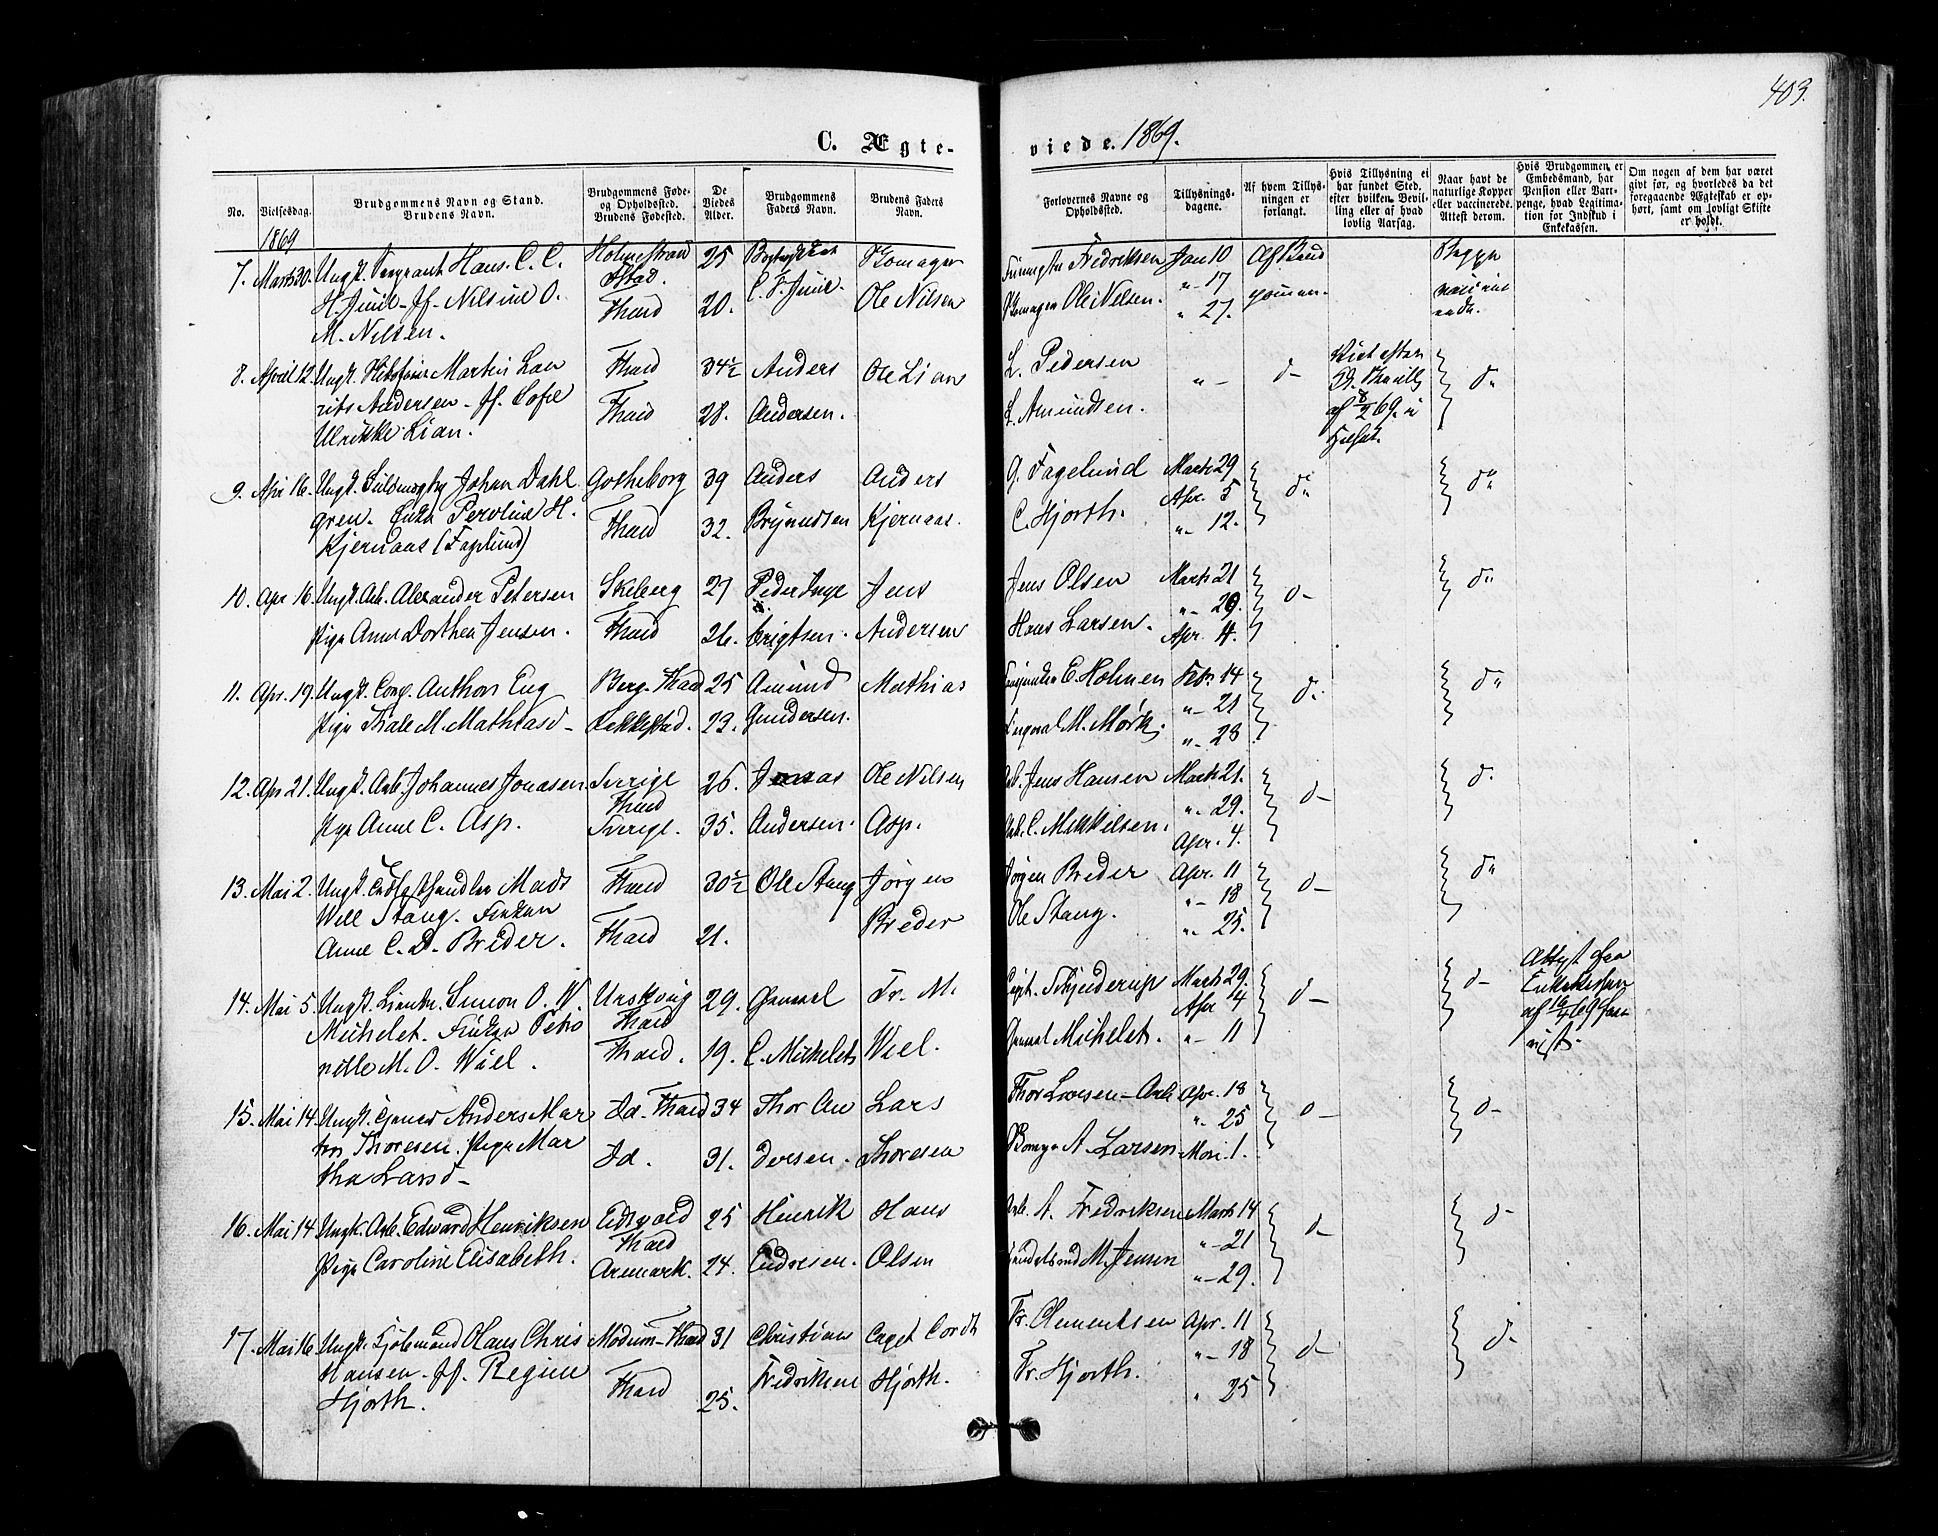 403.
C. Ægte-
viede. 1869.
No.
Vielsesdag.
Brudgommens Navn og Stand.
Brudens Navn.
Brudgommens Føde-
og Opholdsted.
Brudens Fødested.
De
Viedes
Alder.
Brudgommens
Faders Navn.
Brudens Faders
Navn.
Forlovernes Navne og
Opholdsted.
Tillysnings-
dagene.
Af hvem Tillys-
ningen er
forlangt.
Hvis Tillysning ei
har fundet Sted,
efter hvilken Bevil-
ling eller af hvad
lovlig Aarsag.
Naar havt de
naturlige Kopper
eller vaccinerede.
Attest derom.
Hvis Brudgommen er
Embedsmand, har
Pension eller Vart-
penge, hvad Legitima-
tion for Indskud i
Enkekassen.
Om nogen af dem har været
givt før, og hvorledes da det
foregaaende Ægteskab er op-
hørt, samt om lovligt Skifte
er holdt.
1869
7. Marts 30. Ungk. Sergeant Hans. C. C. Holmestrand 25
H. Juul - Jf. Nilsine O. Fhald 20. C. F. Juul. Ole Nilsen
M. Nilsen.
Fredriksen Jan 10 Af Brud
" 17 gommen.
Ole Nilsen. " 27.
Begge
vacine
rede.
8. April 12. Ungk. Martin Lau Fhald 34½ Anders Ole Lian
rits Andersen - Jf. Sofie Fhald 28. Andersen.
Ulrikke Lian.
L. Pedersen " - d-
L. Amundsen.
af 8/2 69. d"
9. Apr 16. Ungk. Johan Dahl Gotheborg 39 Anders Anders
gren. Enke Peroline H. Fhald 32. Bryndtsen Kjernaas.
Kjernaas (Fagelund)
G. Fagelund Marts 29 d" d"
C. Hjorth. Apr. 5
" 12.
10. Apr 16. Ungk. Arb. Alexander Petersen Skeberg 27 Peder Inge Jens
Pige Anne Dorthea Jensen. Fhald 26. brigtsen. Andersen
Jens Olsen Marts 21 d- d"
" 29.
Hans Larsen. Apr. 4.
11. Apr. 19. Ungk. Cong. Anthon Eng Berg. Fhald 25 Amund Mathias
Pige Thale M. Mathiasd - 23. Gundersen.
E. Holmen Febr. 14 d" d"
" 21
M. Mørk. " 28
12. Apr 21. Ungk. Arb. Johannes Jonasen Sverige 26. Jonas Ole Nilsen
Fhald
Pige Anne C. Asp. Sverige. 35. Andersen. Asp.
Arb. Jens Hansen Marts 21. d- d"
" 29.
Arb. C. Mikkelsen. Apr. 4.
13. Mai 2. Ungk. Mads Fhald 30½ Ole Stang Jørgen
Wiel Stang. Frøken Breder
Anne C. D. Breder. Fhald 21.
Jørgen Breder Apr. 11 d- d"
" 18
Ole Stang. " 25.
14. Mai 5. Ungk. Simon O. W. Urskoug 29. General Fr. M.
Michelet. Frøken Petro Fhald
nille M. O. Wiel. Fhald. 19. C. Michelet Wiel.
Capt. Schjuderup Marts 29. d- d-
Apr 4
General Michelet. " 11
Attest fra
Enkekassen
af 16/4 69 frem
vist.
15. Mai 14. Ungk. Anders Mar Id. Fhald 34 Thor An Lars
tin Thoresen. Pige Mar
tha Larsd - Id. 31. dersen. Thoresen
Thor Larsen - Arb. Apr. 18 d- d-
" 25
A. Larsen Mai 1.
16. Mai 14. Ungk. Arb. Edward Henriksen Eidsvold 25 Henrik Hans
Fhald
Pige Caroline Elisabeth. Aremark. 24. Endresen. Olsen
Arb. A. Fredriksen Marts 14 d- d-
" 21
M. Jensen " 29.
17. Mai 16. Ungk. Kjøbmand Hans Chris Modum - Fhald 31 Christian Cordt
Hansen - Jf. Regine Fhald 25. Fredriksen Hjorth.
Hjorth.
Fr. Clementsen Apr. 11 d- d-
" 18
Fr. Hjorth. " 25